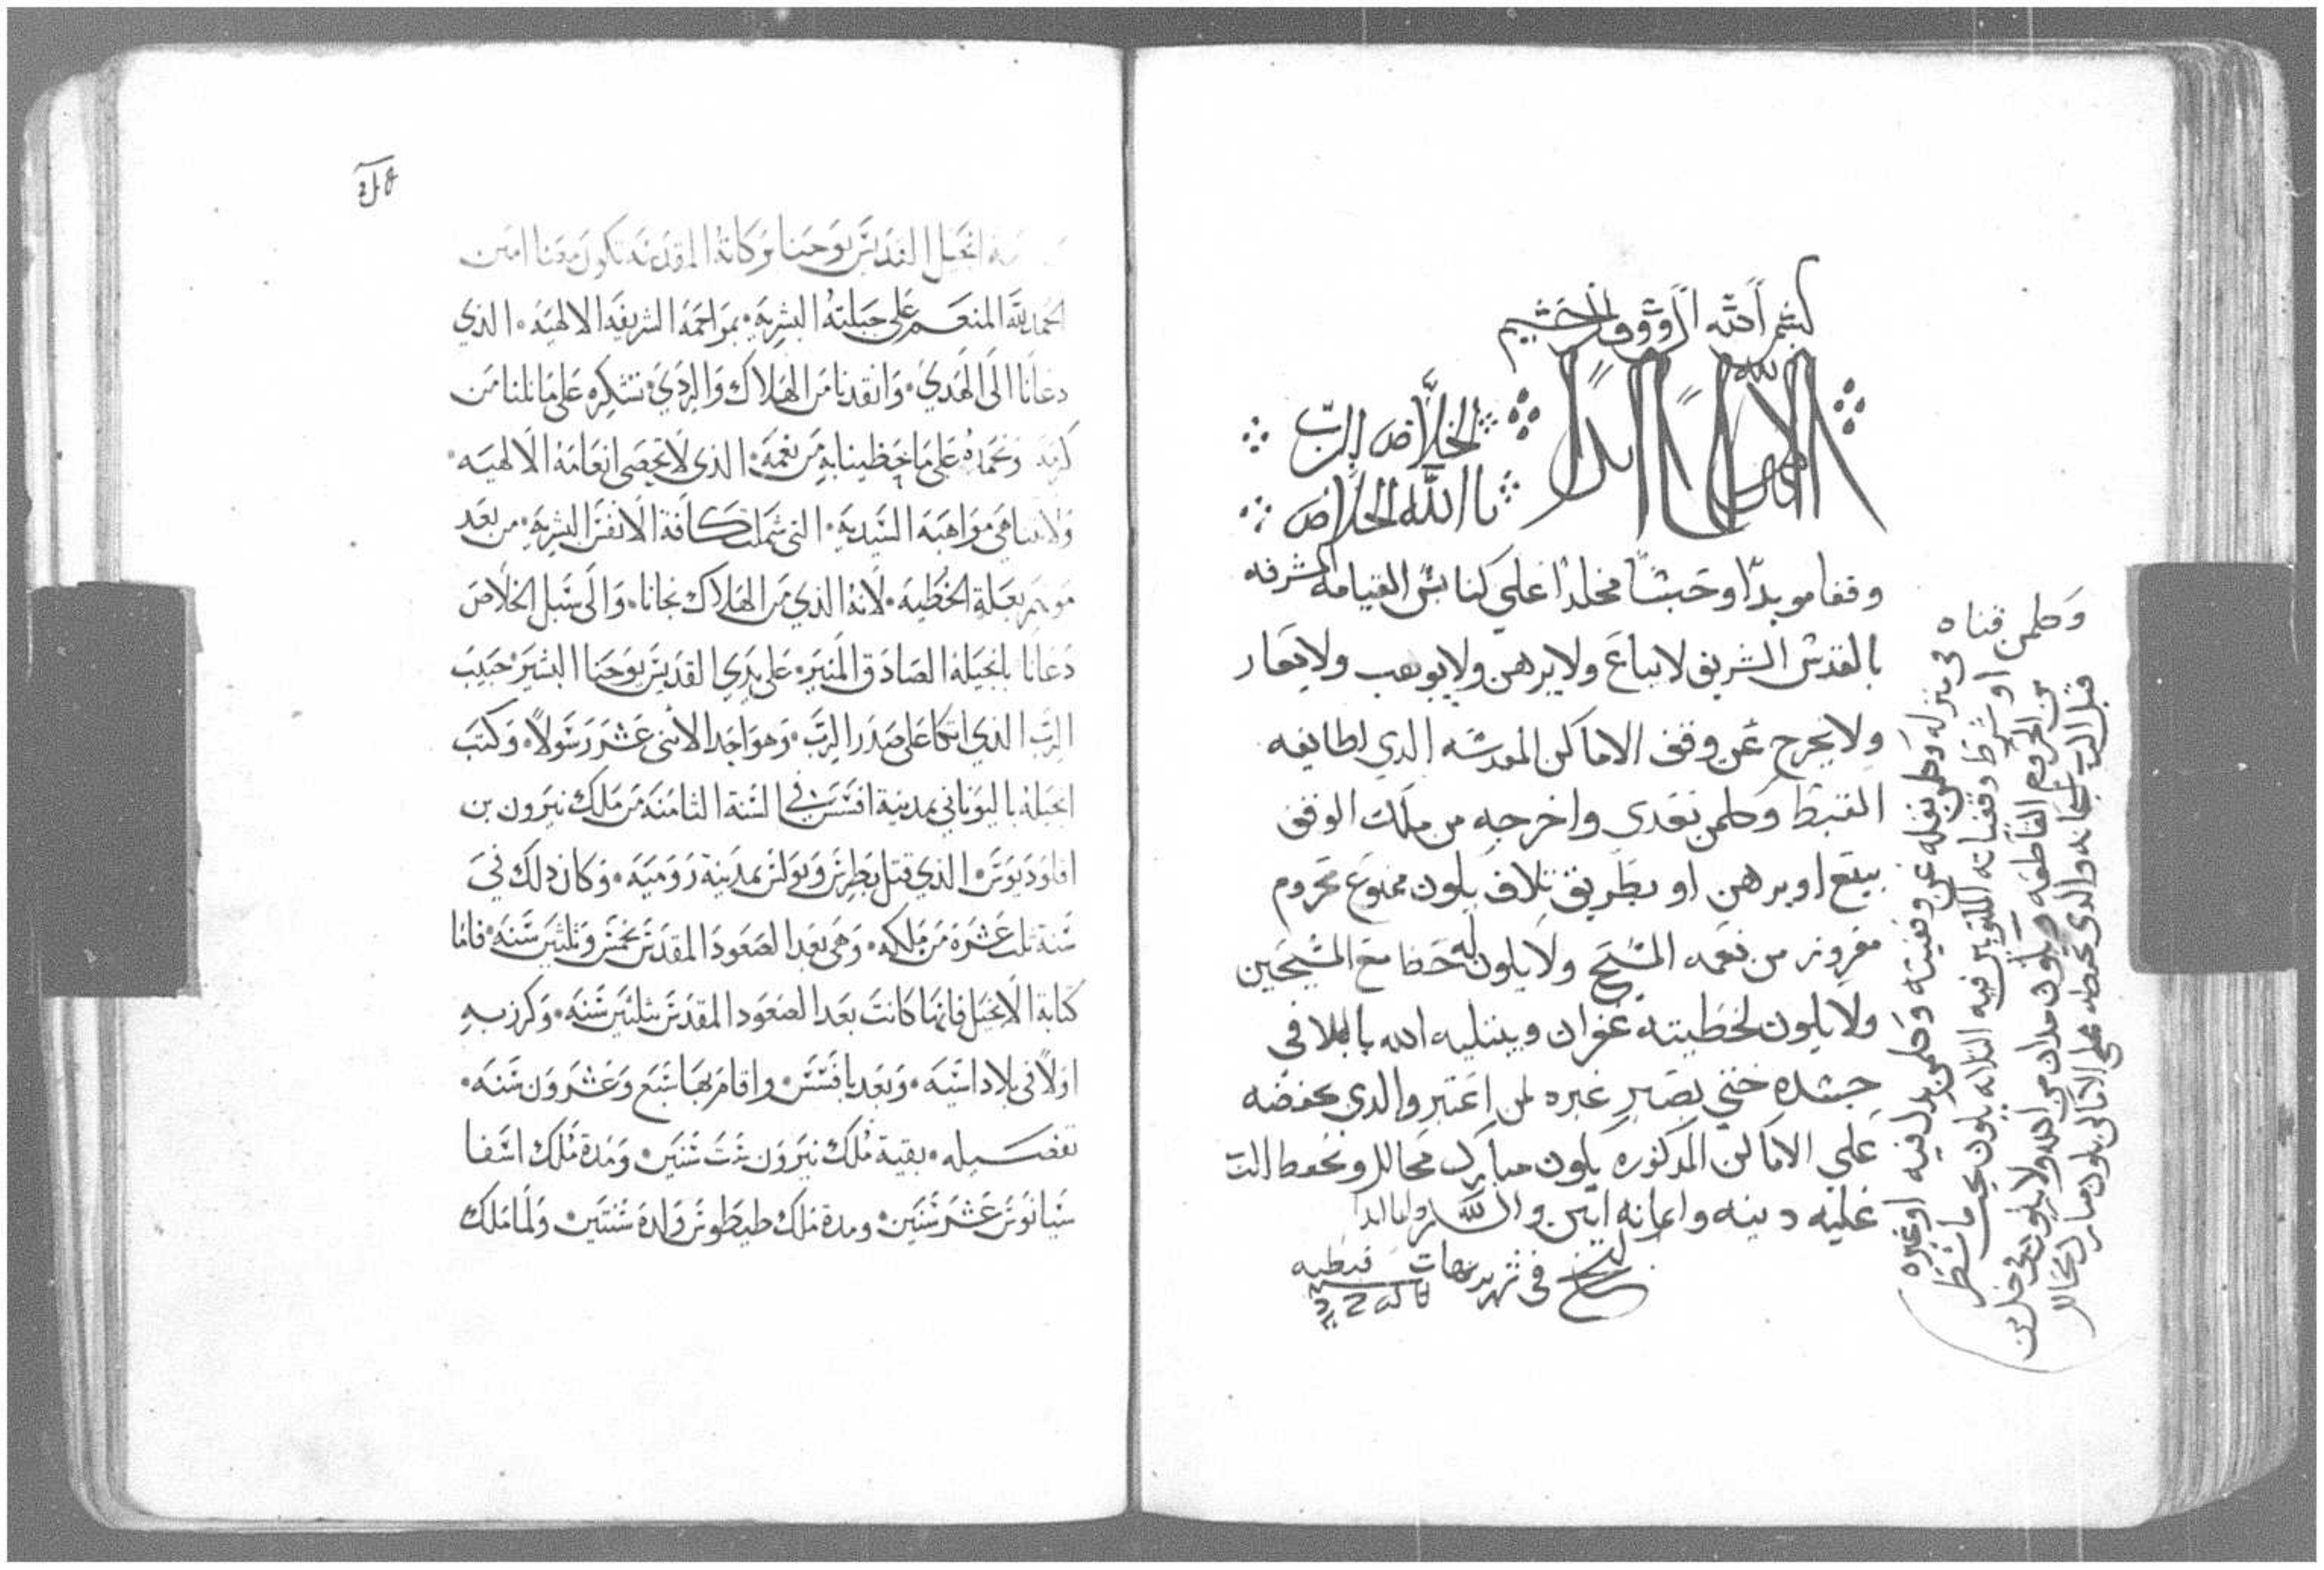 بسم الله الرووف الرحيم
الله
الخلاص للرب
يا الله الخلاص
وقفا موبدا وحبسا مخلدا علي كنايس القيامه المشرفه
بالقدس الشريف لا يباع ولا يرهن ولا يوهب ولا يعار
ولا يخرج عن وقف الاماكن المقدسه الذي لطايفه
القبط وكلمن تعدي واخرجه من ملك الوقف
ببيع او برهن او بطريق تلاف يكون ممنوع محروم
مفروز من نعمه المسيح ولا يكون له حظا مع المسيحين
ولا يكون لخطيته غفران ويبتليه الله بالبلا في
جسده حتي يصير عبره لمن اعتبر والذي يحفضه
علي الاماكن المذكوره يكون مبارك محالل وتحفظ الرب
عليه دينه وامانه امين والسلام
في شهر برمهات قبطيه
وكلمن قناه
في منزله وكلمن نقله عن وقفيته وكلمن بدل فيه او غيره
او شرط وقفياته المكتوبين فيه يكون تحت ما شطر
من الحروم القاطعه ويكون مدان من الله ولا يكون في حل من
قبل الرب سبحانه والذي يحفظه علي الاماكن يكون مبارك محالل
انجيل القديس يوحنا بركاته المقدسه تكون معنا امين
الحمد لله المنعم علي جبلته البشريه بمراحمه الشريفه الالهيه الذي
دعانا الي الهدي وانقدنا من الهلاك والردي نشكره علي ما نلنا من
كرمه ونحمده علي ما حظينا به من نعمه الذي لا تحصي انعامه الالهيه
ولا تتناهي مواهبه السيديه التي شملت كافة الانفس البشريه من بعد
موتهم بعلة الخطيه لانه الذي من الهلاك نجانا والي سبل الخلاص
دعانا بانجيله الصادق المنير علي يدي القديس يوحنا البشير حبيب
الرب الذي اتكا علي صدر الرب وهو احد الاثني عشر رسولا وكتب
انجيله باليوناني بمدينة افسس في السنة الثامنه من ملك نيرون بن
اقلوديوس الذي قتل بطرس وبولس بمدينة روميه وكان ذلك في
سنة ثلث عشره من ملكه وهي بعد الصعود المقدس بخمس وثلثين سنه فاما
كتابة الانجيل فانها كانت بعد الصعود المقدس بثلثين سنه وكرز به
اولا في بلاد اسيه وبعد بافسس واقام بها سبع وعشرون سنه
تفصيله بقية ملك نيرون ست سنين ومدة ملك اسفا
سيانوس عشر سنين ومدة ملك طيطوس ولده سنتين ولما ملك